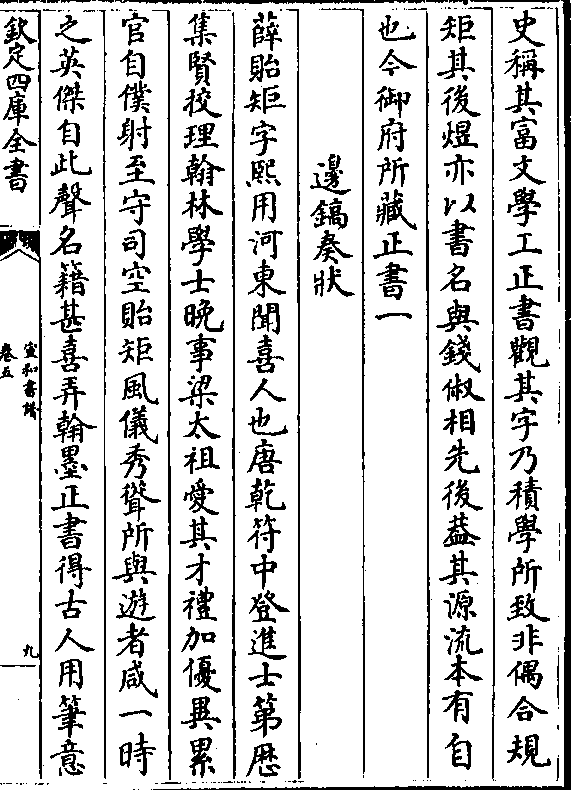 史稱其富文學工正書觀其字乃積學所致非偶合規
矩其後煜亦以書名與錢俶相先後葢其源流本有自
也今御府所藏正書一
邊鎬奏狀
薛貽矩字熙用河東聞喜人也唐乾符中登進士第歴
集賢校理翰林學士晩事梁太祖愛其才禮加優異累
官自僕射至守司空貽矩風儀秀聳所與遊者咸一時
之英傑自此聲名籍甚喜弄翰墨正書得古人用筆意
欽定四庫全書
宣和書譜
卷五
九